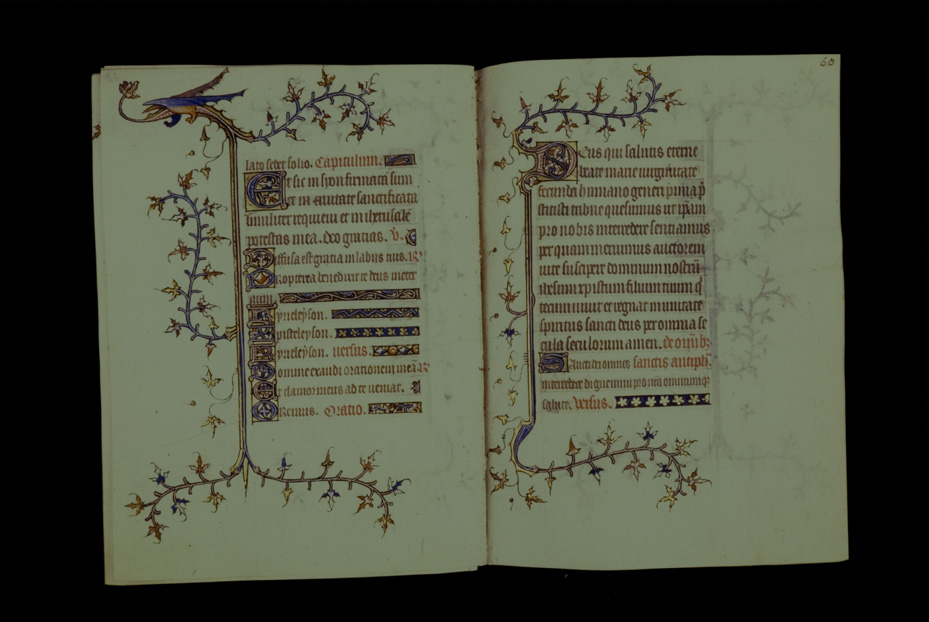 lato sedet solio. Capitulum.
Et sic in syon firmata sum
et in civitate sanctificata
similiter requievi et in iherusalē
potestas mea. deo gracias. V.
Diffusa est gratia in labiis tuis. R
Propterea benedixit te deus in eter
num.
Kyrieleyson.
Xpisteleyson.
Kyrieleyson. versus.
Domine exaudi orationem meā. R
Et clamor meus ad te veniat.
Oremus. Oratio.
60
Deus qui salutis eterne
beate marie virginitate
fecunda humano generi pmia p̄
stitisti tribue quesumus ut ipam
pro nobis intercedere senciamus
per quam meruimus auctorem
vite suscipere dominum nostrū
ihesum xpistum filium tuum q̄
tecum vivit et regnat in unitate
spiritus sancti deus per omnia se
cula seculorum amen. de omīb;
Sancti dei omnes sanctis antiph.
intercedere dignemini pro nīa omniumq;
salute. Versus.